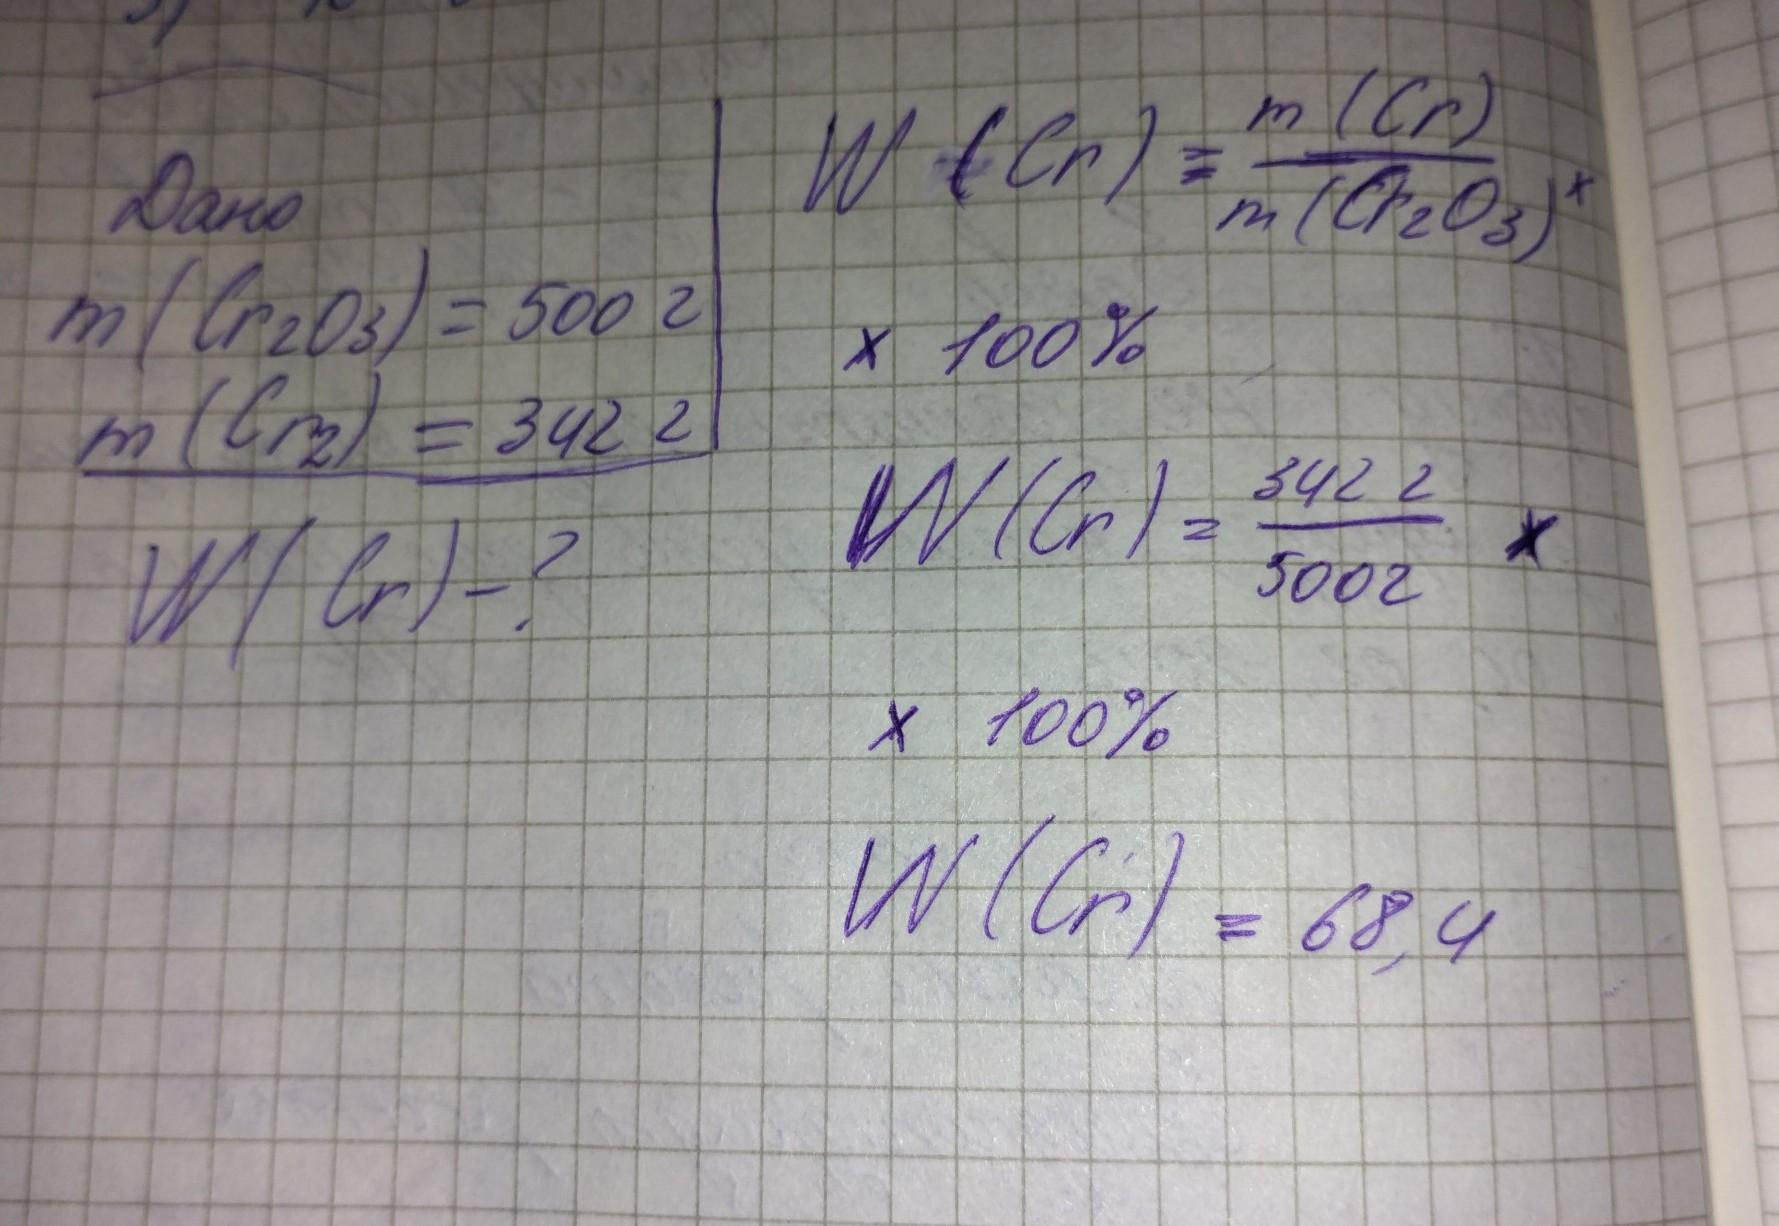 Дано
m(Cr2O3) = 500 г
m(Cr2) = 342 г
W(Cr) - ?
W (Cr) = m (Cr) / m (Cr2O3) x
x 100%
W (Cr) = 342 г / 500г x
x 100%
W (Cr) = 68,4